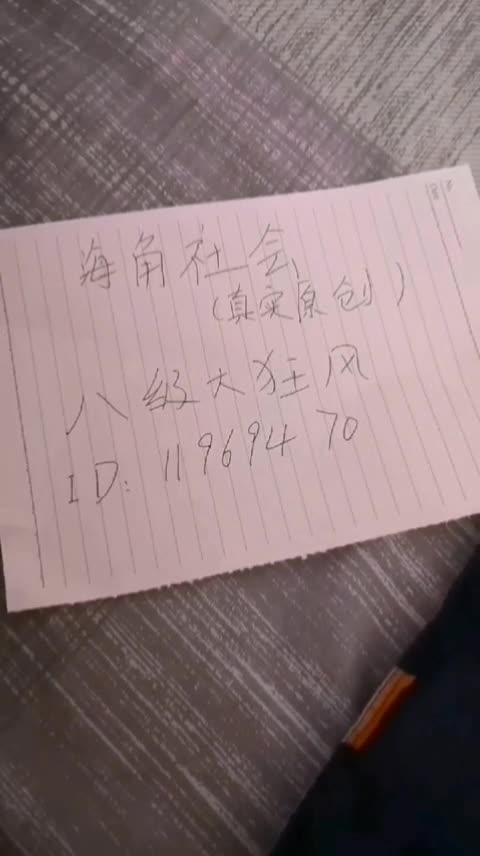 海角社会
(真实原创)
八级大狂风
ID: 11969470